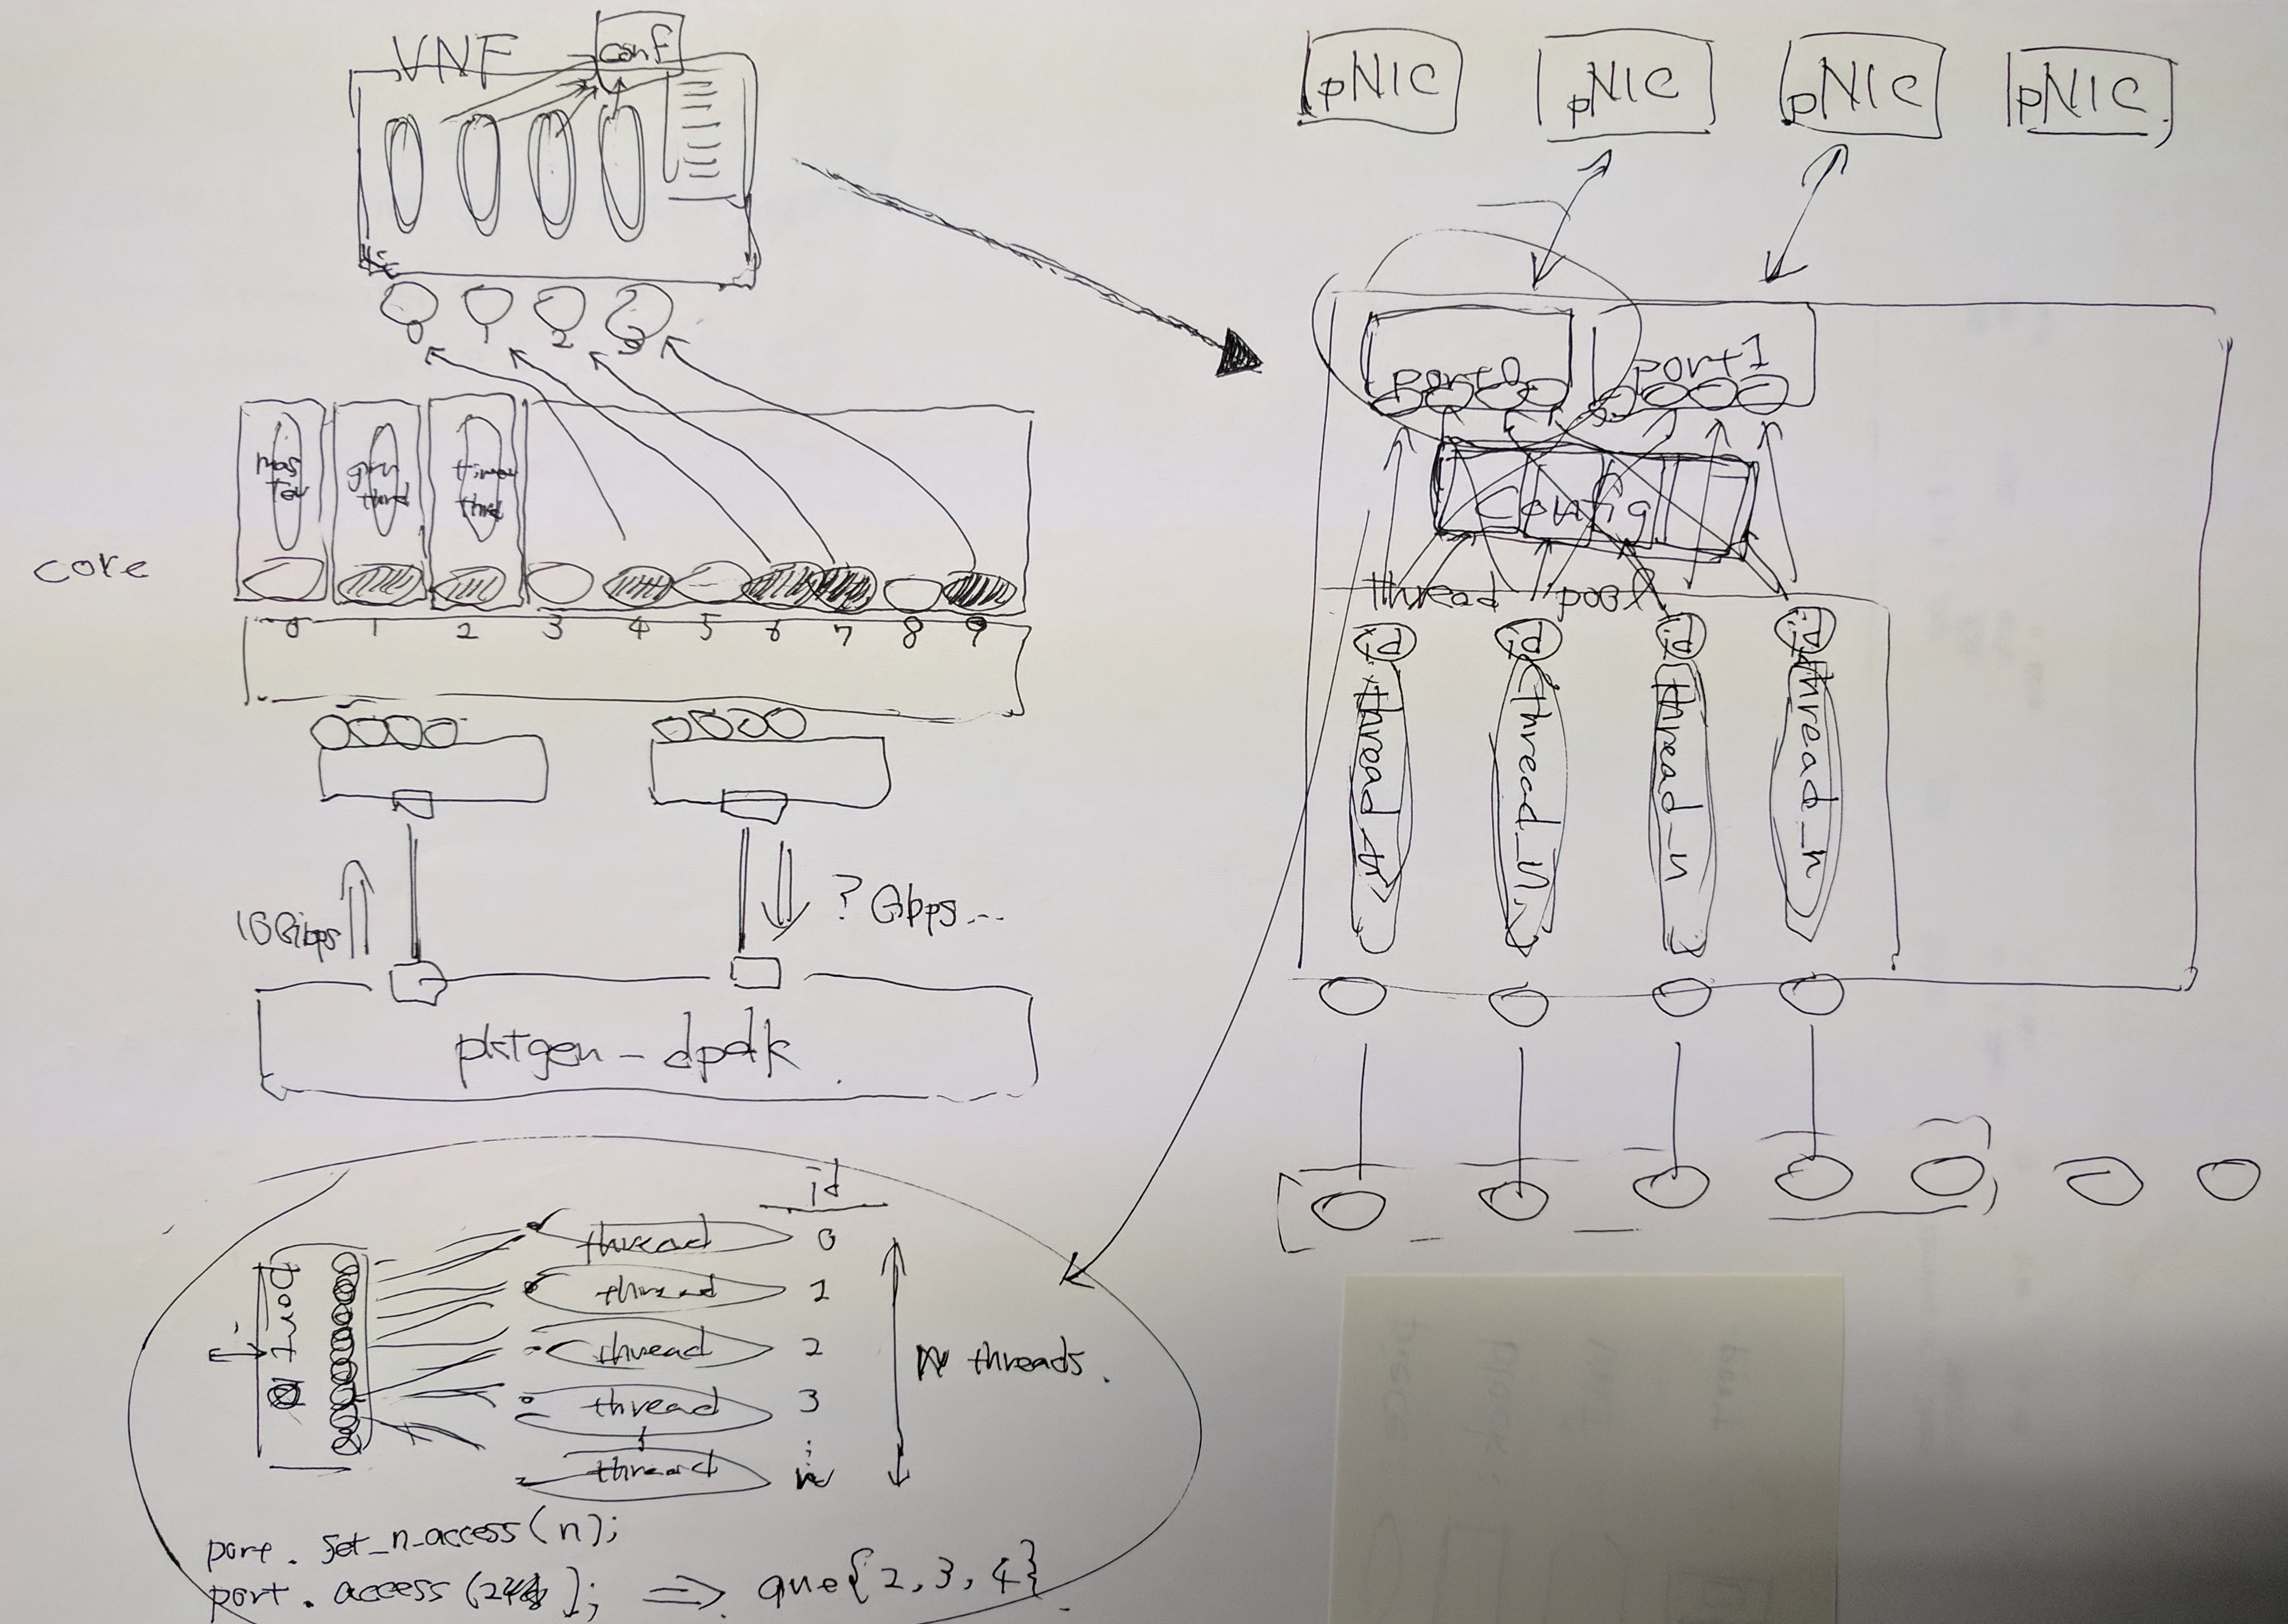 VNF
conf
0 1 2 3
mas
ter
timer
thrd
core
0 1 2 3 4 5 6 7 8 9
10Gbps
? Gbps...
pktgen-dpdk
pNIC
pNIC
pNIC
pNIC
port0
port1
Config
thread pool
id
id
id
id
thread_n
thread_n
thread_n
thread_n
id
thread 0
thread 1
thread 2
thread 3
thread n
n threads.
port
port.set_n_access(n);
port.access(
=> que{2,3,4}